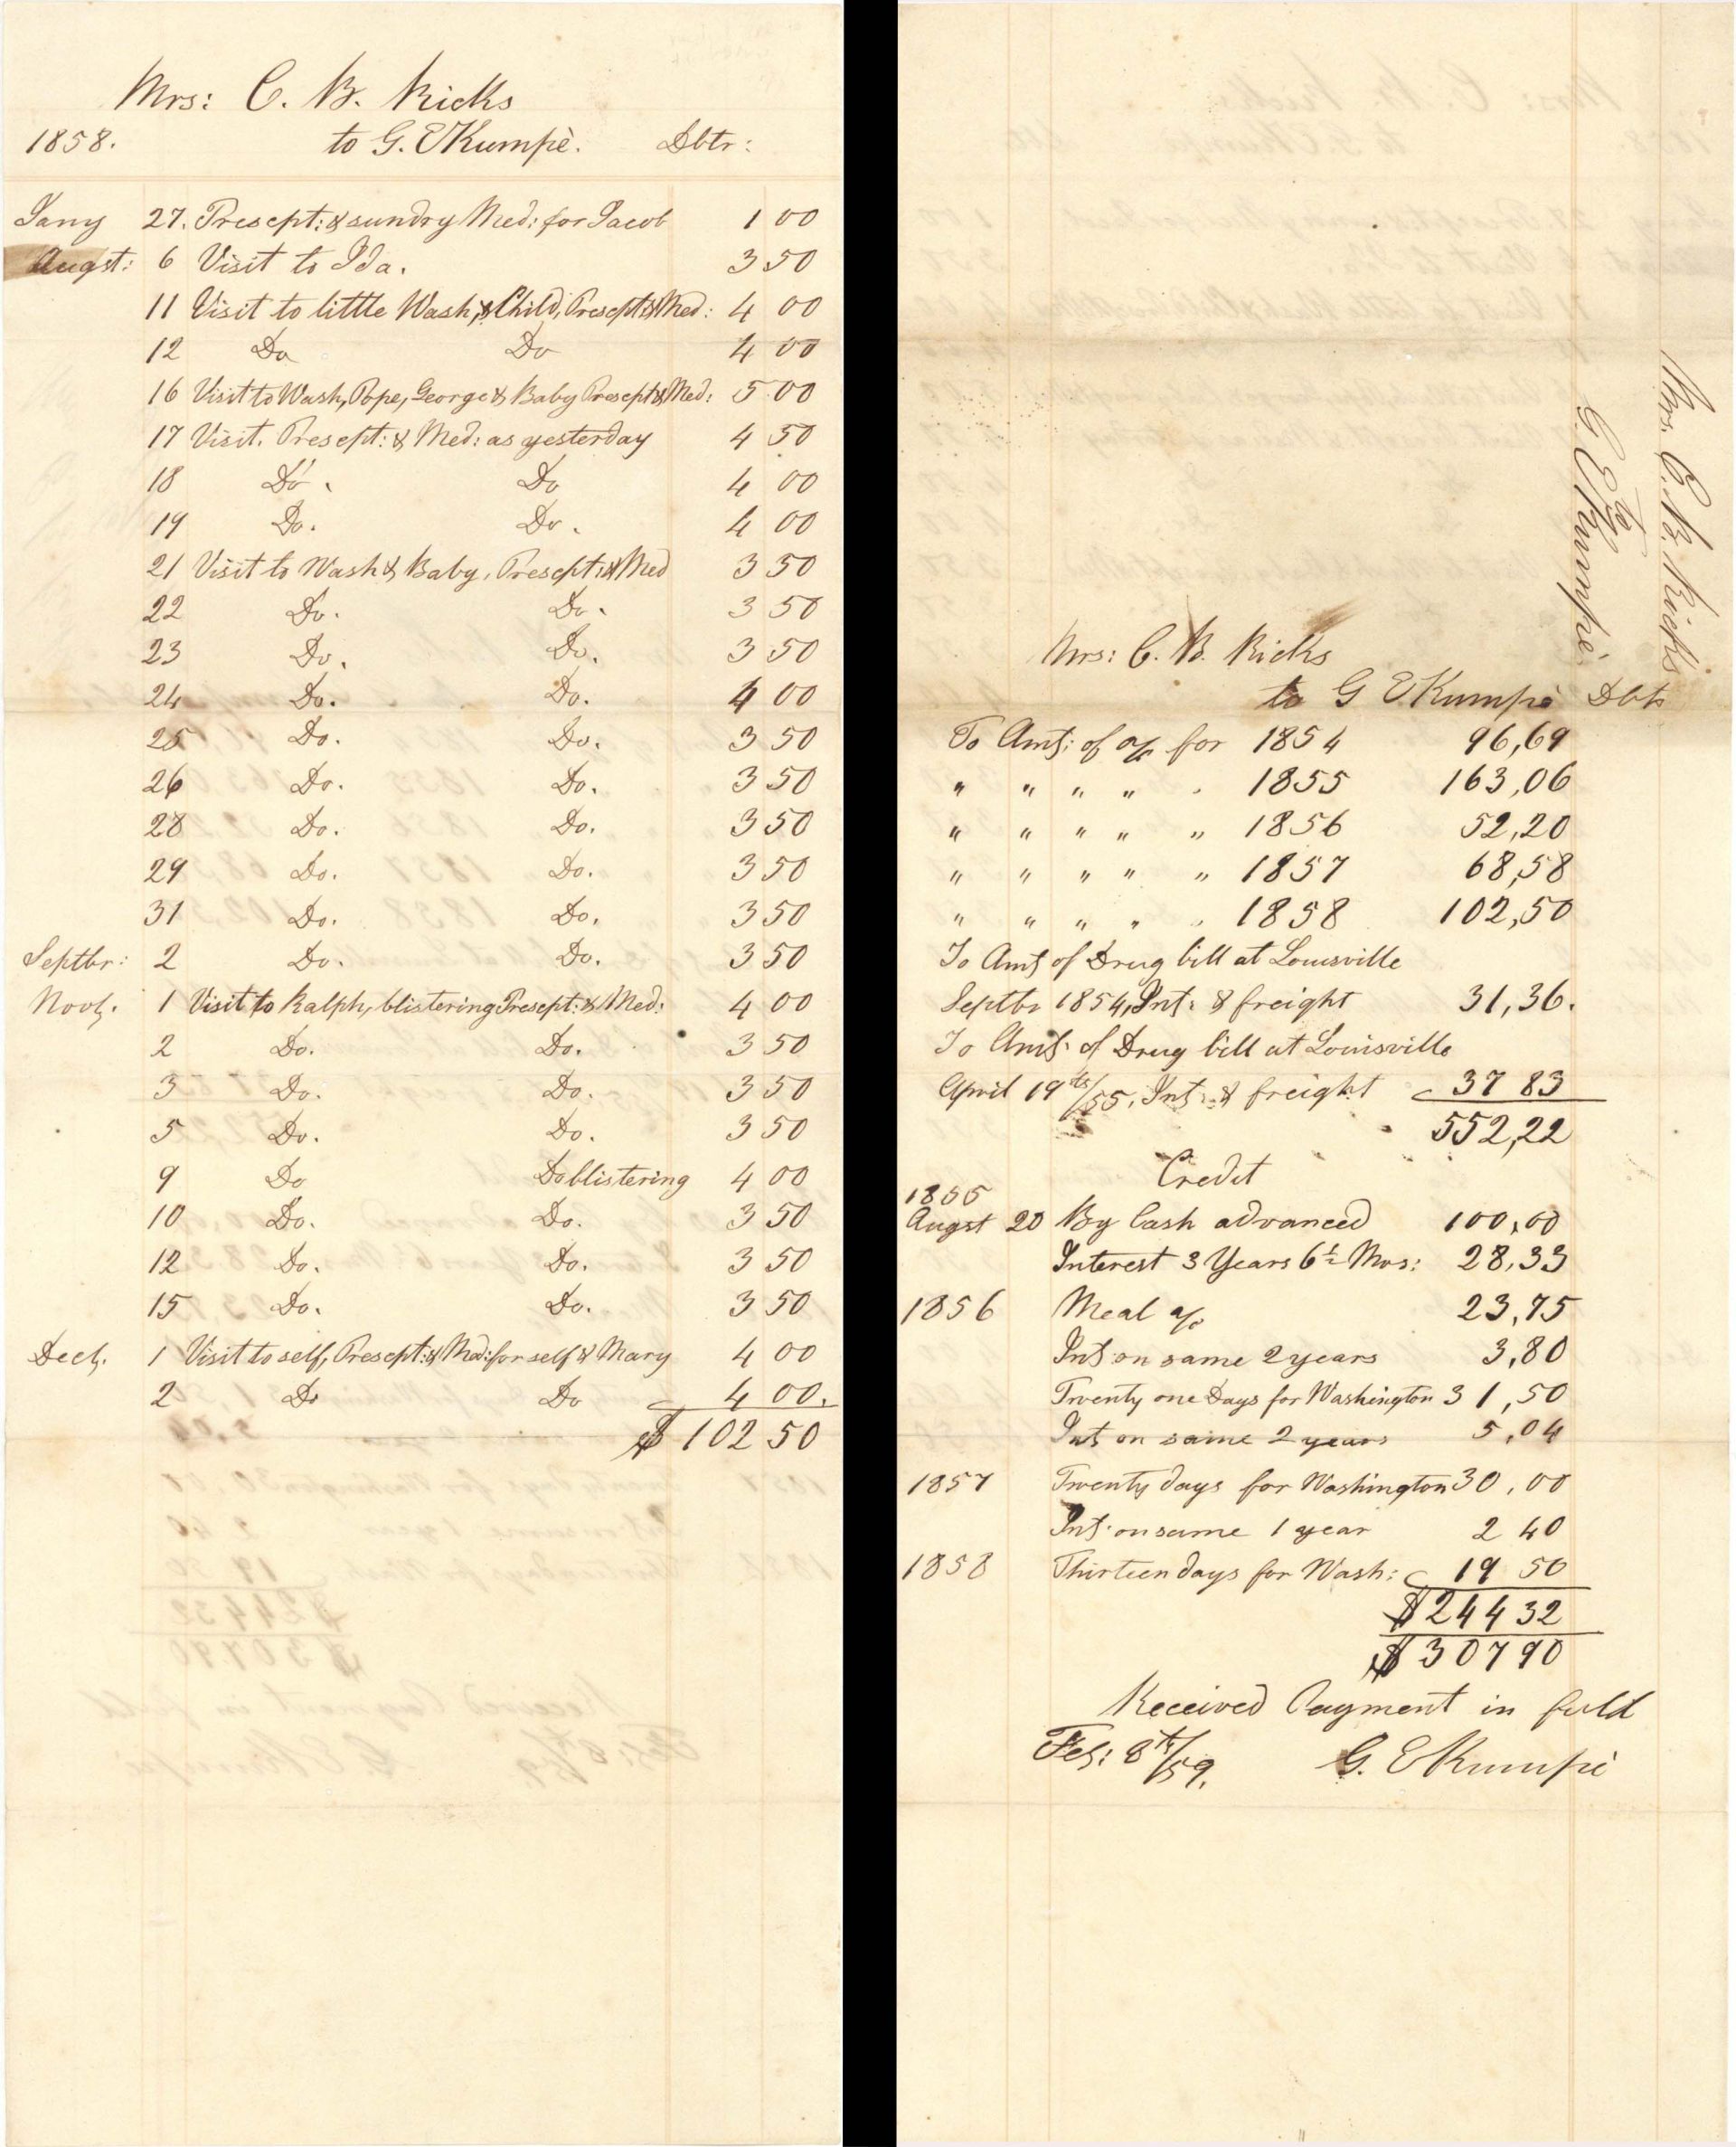 Mrs: C. B. Ricks
1858. to G. E Kumpè. Dbtr:
Jany 27. Presept: & sundry Med: for Jacob 1 00
Augst: 6 Visit to Ida. 3 50
11 Visit to little Wash, & Child, Presept: & Med: 4 00
12 Do Do 4 00
16 Visit to Wash, Pope, George & Baby Presept & Med: 5 00
17 Visit. Presept: & Med: as yesterday 4 50
18 Do. Do 4 00
19 Do. Do. 4 00
21 Visit to Wash & Baby, Presept: & Med 3 50
22 Do. Do. 3 50
23 Do. Do. 3 50
24 Do. Do. 4 00
25 Do. Do. 3 50
26 Do. Do. 3 50
28 Do. Do. 3 50
29 Do. Do. 3 50
31 Do. Do. 3 50
Septbr: 2 Do. Do. 3 50
Novb. 1 Visit to Ralph, blistering Presept: & Med: 4 00
2 Do. Do. 3 50
3 Do. Do. 3 50
5 Do. Do. 3 50
9 Do Do blistering 4 00
10 Do. Do. 3 50
12 Do. Do. 3 50
15 Do. Do. 3 50
Decb. 1 Visit to self, Presept: & Med: for self & Mary 4 00
2 Do Do 4 00.
$ 102 50
Mrs. C. B. Ricks
to
G. E Kumpè.
Mrs: C. B. Ricks
to G E Kumpè Dbtr
To Amt: of a/c for 1854 96,69
" " " " " 1855 163,06
" " " " " 1856 52,20
" " " " " 1857 68,58
" " " " " 1858 102,50
To Amt of Drug bill at Louisville
Septbr 1854, Int: & freight 31,36.
To Amt. of Drug bill at Louisville
April 19th/55, Int: & freight 37 83
552,22
Credit
1855
Augst 20 By Cash advanced 100,00
Interest 3 Years 6 1/2 Mos: 28,33
1856 Meal a/c 23,75
Int: on same 2 years 3,80
Twenty one Days for Washington 31,50
Int on same 2 years 5,04
1857 Twenty days for Washington 30,00
Int: on same 1 year 2 40
1858 Thirteen days for Wash: 19 50
$244 32
$307 90
Received Payment in full
Feb: 8th/59. G. E Kumpè